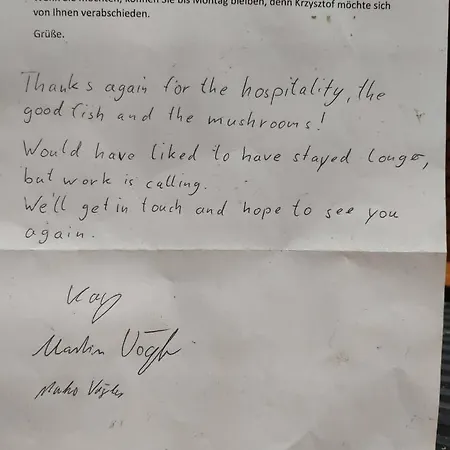 können Sie bis Montag bleiben, denn Krzysztof möchte sich
von Ihnen verabschieden.
Grüße.
Thanks again for the hospitality, the
good fish and the mushrooms!
Would have liked to have stayed longer,
but work is calling.
We'll get in touch and hope to see you
again.
Kay
Martin Vogh